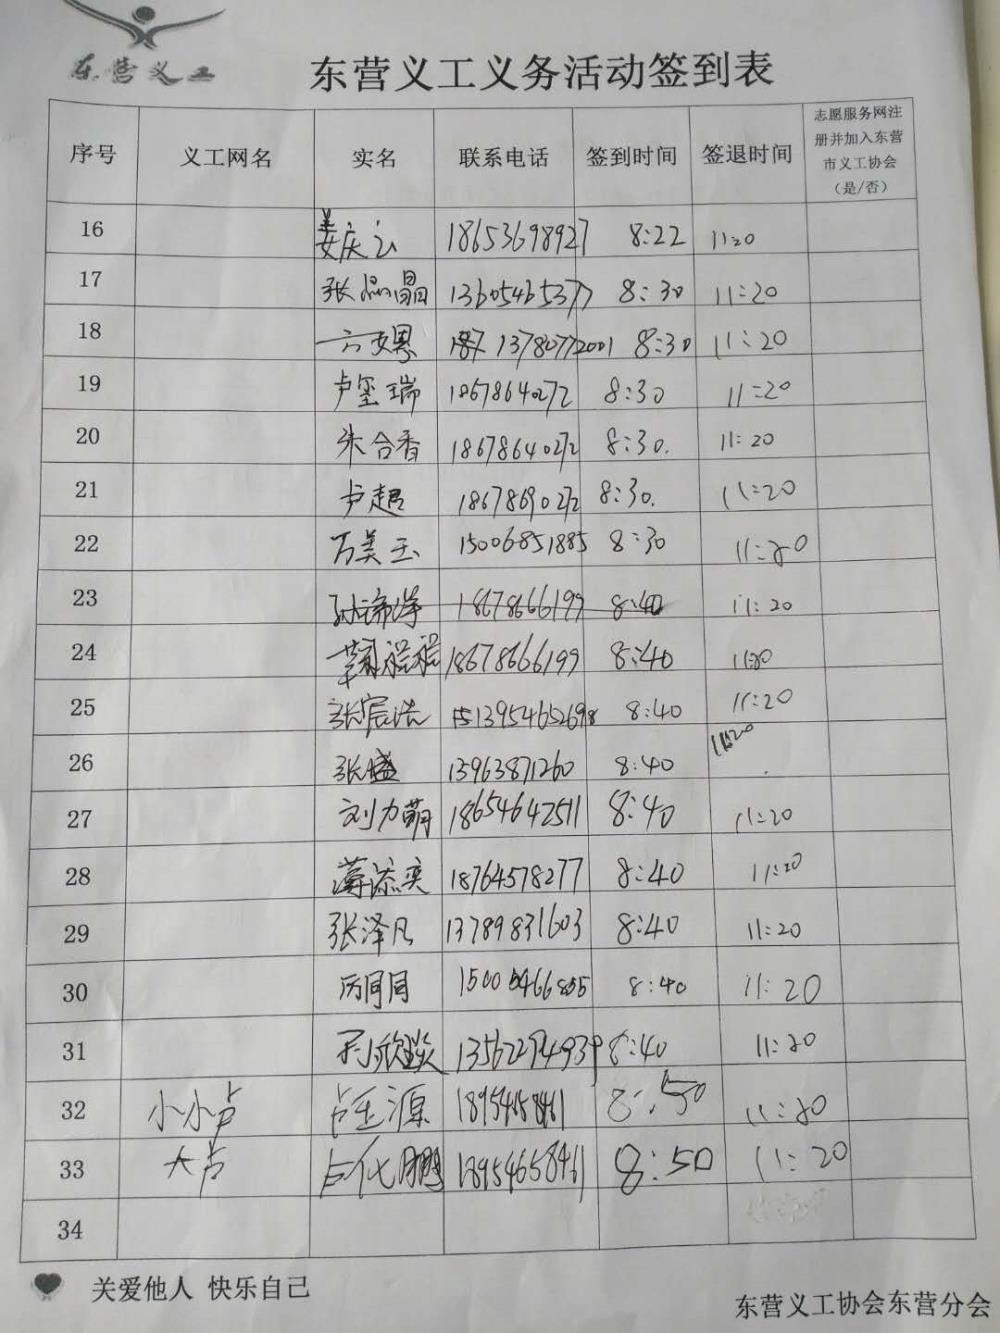 东营义工
东营义工义务活动签到表
序号 义工网名 实名 联系电话 签到时间 签退时间 志愿服务网注册并加入东营市义工协会（是/否）
16 娄庆云 18653698927 8:22 11:20
17 张晶晶 13605465377 8:30 11:20
18 13780772001 8:30 11:20
19 卢玺瑞 18678640272 8:30 11:20
20 朱合香 18678640272 8:30. 11:20
21 卢超 18678690272 8:30. 11:20
22 万美玉 15006851885 8:30 11:20
23 18678666199 8:40 11:20
24 18678666199 8:40 11:20
25 张宸浩 13954652698 8:40 11:20
26 张盛 13963871260 8:40 11:20
27 刘力萌 18654642511 8:40 11:20
28 薄添奕 18764578277 8:40 11:20
29 张泽凡 13789831603 8:40 11:20
30 历同同 8:40 11:20
31 8:40 11:20
32 小小卢 卢玉源 8:50 11:20
33 大卢 卢化鹏 18954658461 8:50 11:20
34
关爱他人 快乐自己
东营义工协会东营分会